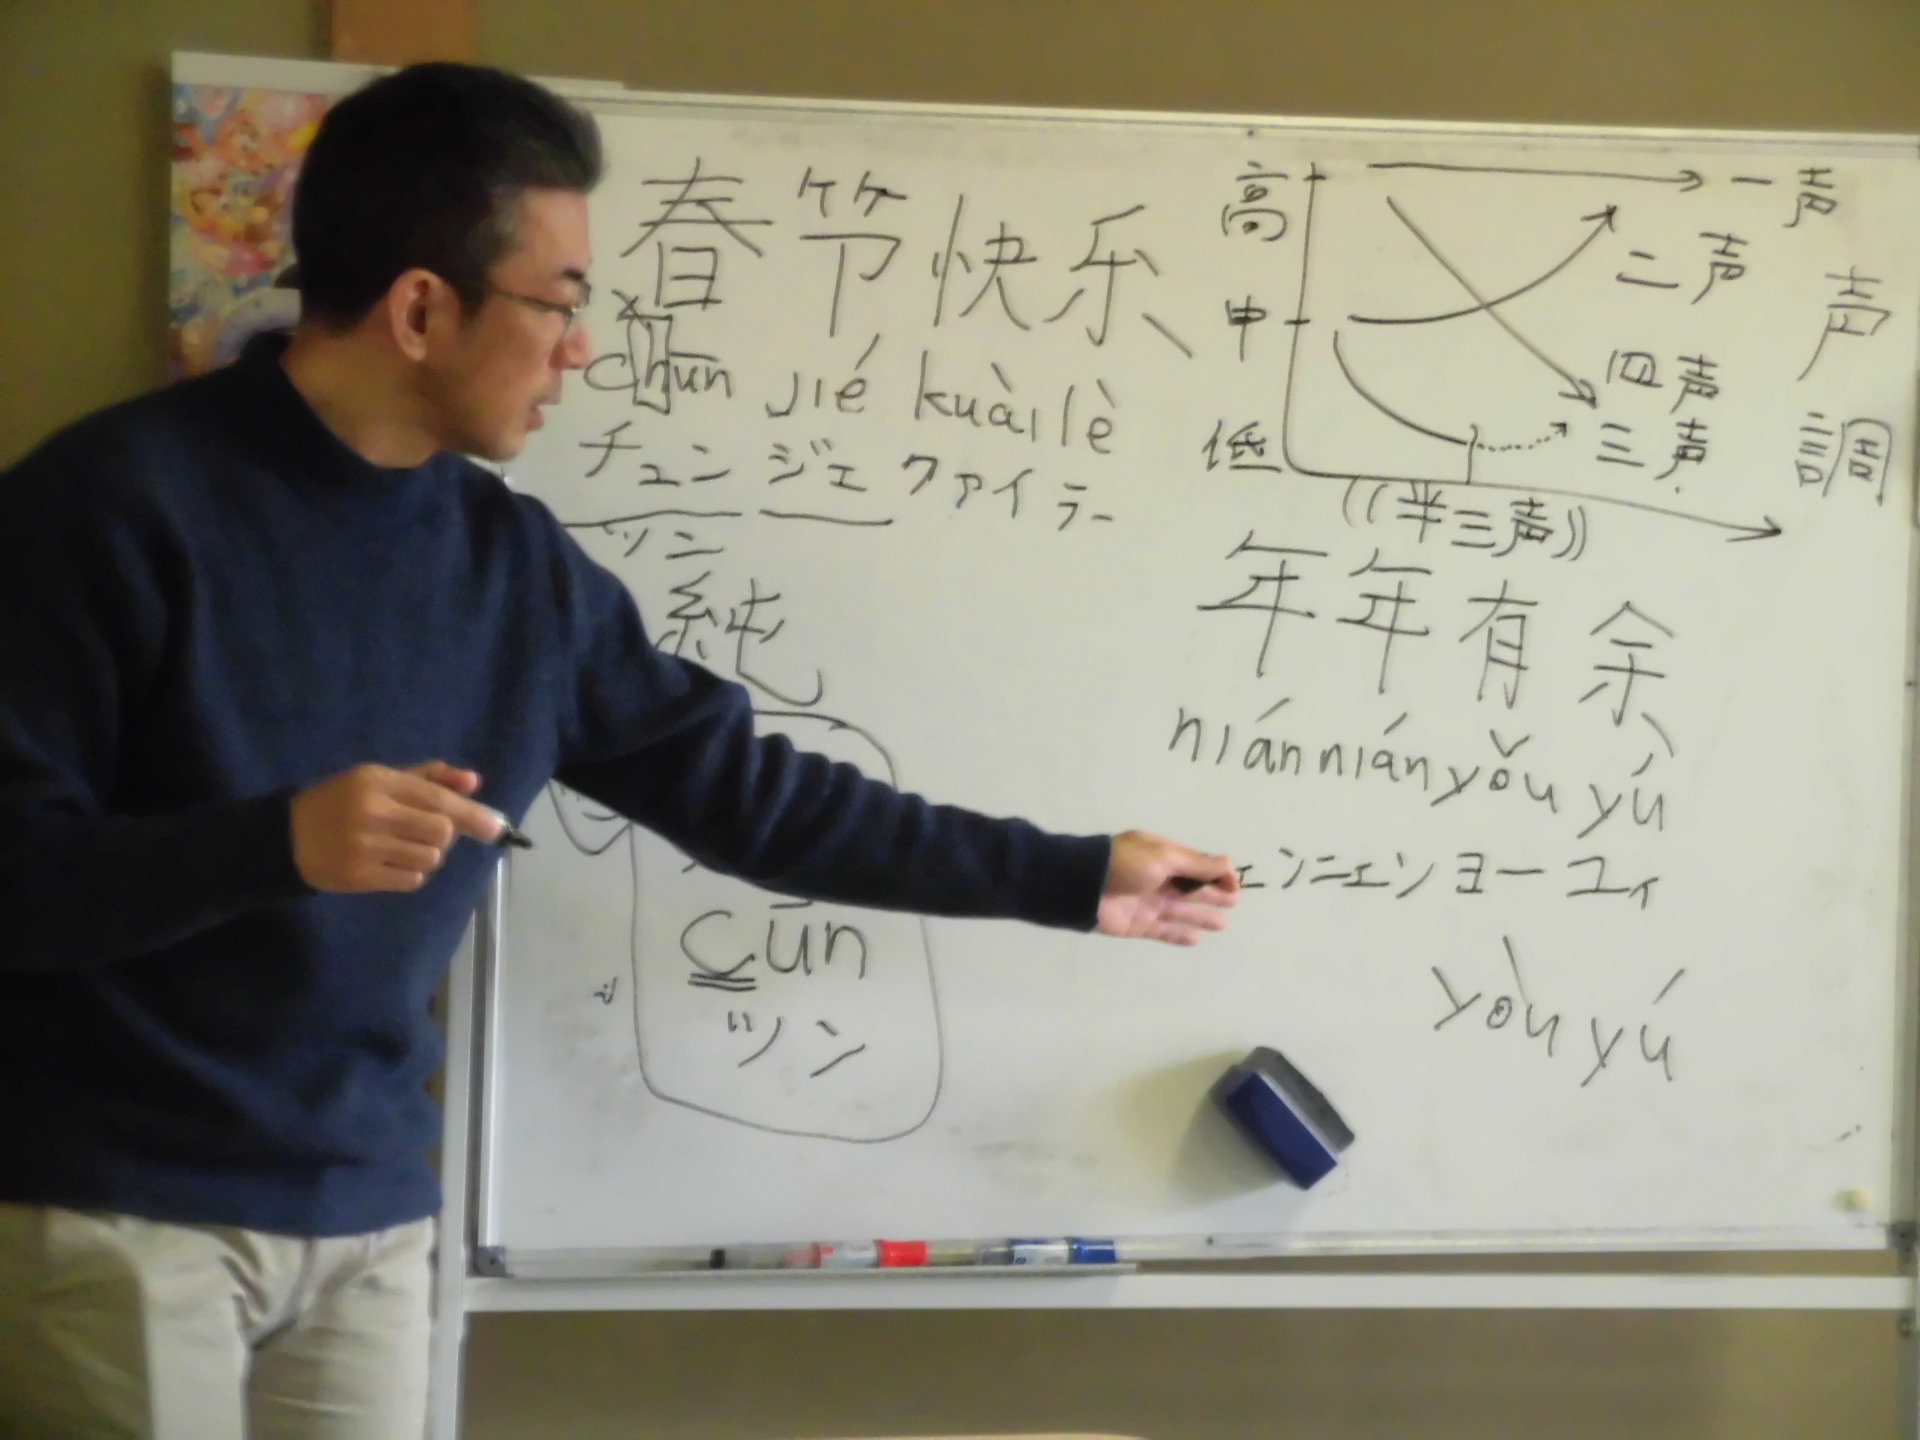 春节快乐
chūn jié kuàilè
チュン ジェ クァイ ラー
ツン
純
cūn
ツン
高
中
低
一声
二声
四声
三声
((半三声))
声調
年年有余
niánniányǒu yú
ェンニェン ヨー ユィ
yòu yú